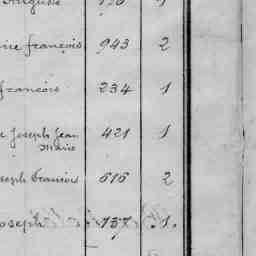 Auguste 176 1
rie françois 943 2
françois 234 1
e Joseph Jean 421 1
Marie
seph François 616 2
Joseph 137 1.